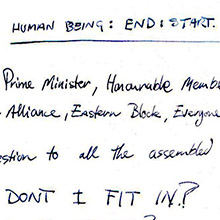 HUMAN BEING: END: START.
Prime Minister, Honourable Memb
Alliance, Eastern Block, Everyone
estion to all the assembled
DONT I FIT IN?